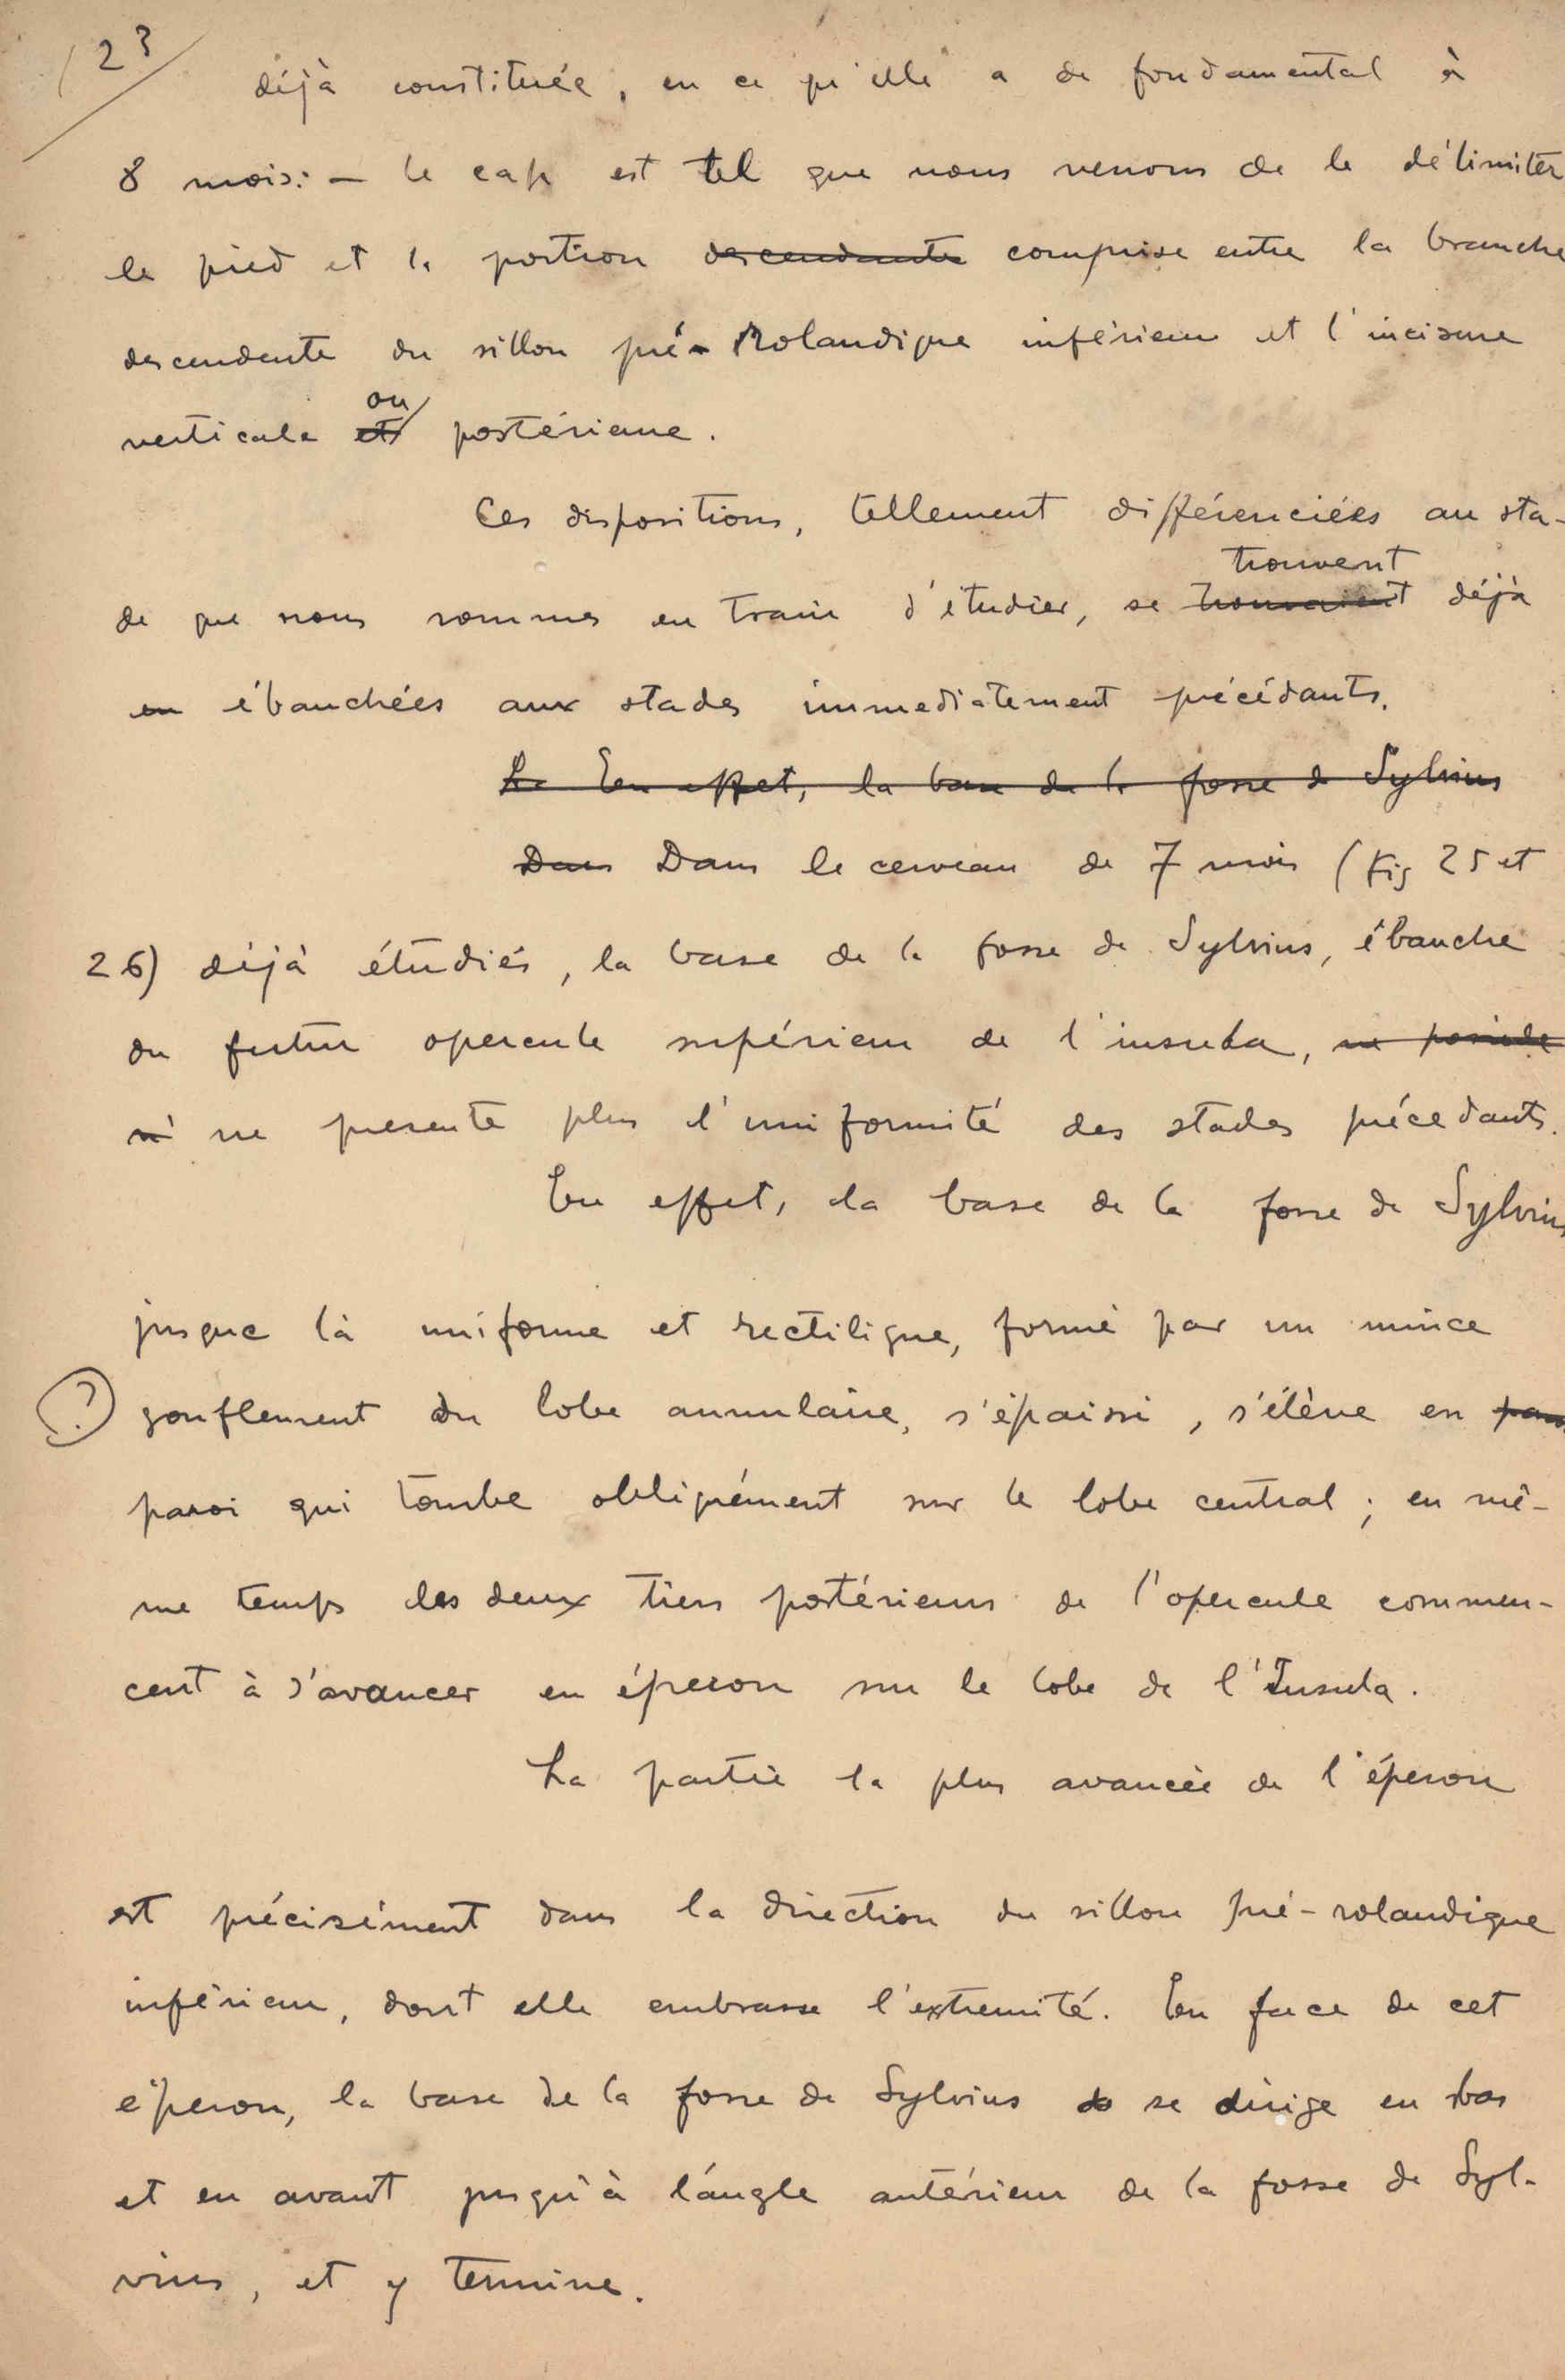 23
déjà constituée, en ce qu'elle a de fondamental à
8 mois: — le cap est tel que nous venons de le délimiter
le pied et la portion descendante comprise entre la branche
descendente du sillon pré-Rolandique inférieur et l'incisure
ou
verticale et postérieure.
Ces dispositions, tellement différenciées au sta-
trouvent
de que nous sommes en train d'étudier, se trouvaient déjà
en ébauchées aux stades immediatement précédants.
La En effet, la base de la fosse de Sylvius
Dans Dans le cerveau de 7 mois (fig 25 et
26) déjà étudiés, la base de la fosse de Sylvius, ébauche
du futur opercule supérieur de l'insula, ne possède
n' ne presente plus l'uniformité des stades précedants.
En effet, la base de la fosse de Sylvius
jusque là uniforme et rectiligne, formé par un mince
(?) gonflement du lobe annulaire, s'épaissi, s'élève en
paroi qui tombe obliquément sur le lobe central; en mê-
me temps les deux tiers postérieurs de l'opercule commen-
cent à s'avancer en éperon sur le lobe de l'Insula.
La partie la plus avancée de l'éperon
est précisément dans la direction du sillon pré-rolandique
inférieur, dont elle embrasse l'extremité. En face de cet
éperon, la base de la fosse de Sylvius se dirige en bas
et en avant jusqu'à l'angle antérieur de la fosse de Syl-
vius, et y termine.